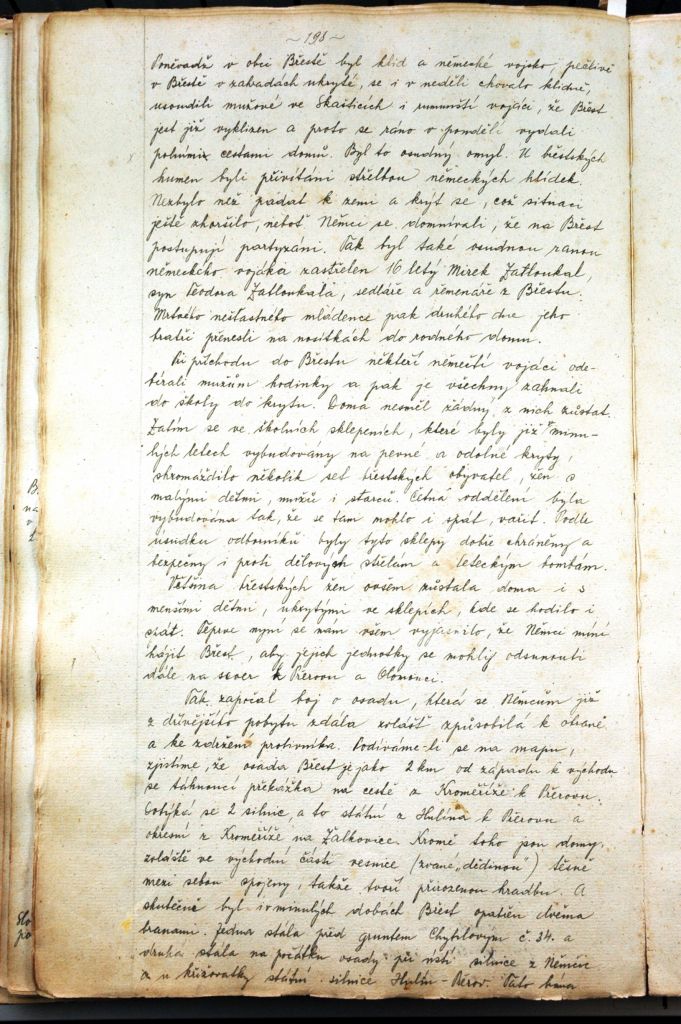 ~ 198 ~
Poněvadž v obci Břestě byl klid a německé vojsko, pečlivě
v Břestě v zahradách ukryté, se i v neděli chovalo klidně,
usoudili mužové ve Skašticích i rumunští vojáci, že Břest
jest již vyklizen a proto se ráno v pondělí vydali
polními cestami domů. Byl to osudný omyl. U břestských
humen byli přivítáni střelbou německých hlídek.
Nezbylo než padat k zemi a krýt se, což situaci
ještě zhoršilo, neboť Němci se domnívali, že na Břest
postupují partyzáni. Tak byl také osudnou ranou
německého vojáka zastřelen 16 letý Mirek Zatloukal,
syn Teodora Zatloukala, sedláře a řemenáře z Břestu.
Mrtvého nešťastného mládence pak druhého dne jeho
bratři přenesli na nosítkách do rodného domu.
Při příchodu do Břestu někteří němečtí vojáci ode-
bírali mužům hodinky a pak je všechny zahnali
do školy do krytu. Doma nesměl žádný z nich zůstat.
Zatím se ve školních sklepeních, které byly již v minu-
lých letech vybudovány na pevné a odolné kryty,
shromáždilo několik set břestských obyvatel, žen s
malými dětmi, mužů i starců. Četná oddělení byla
vybudována tak, že se tam mohlo i spát, vařit. Podle
úsudku odborníků byly tyto sklepy dobře chráněny a
bezpečny i proti dělovým střelám a leteckým bombám.
Většina břestských žen ovšem zůstala doma i s
menšími dětmi, ukrytými ve sklepích, kde se hodilo i
spát. Teprve nyní se nám všem vyjasnilo, že Němci míní
hájit Břest, aby jejich jednotky se mohly odsunouti
dále na sever k Přerovu a Olomouci.
Tak započal boj o osadu, která se Němcům již
z dřívějšího pobytu zdála zvlášť způsobilá k obraně
a ke zdržení protivníka. Podíváme-li se na mapu,
zjistíme, že osada Břest je jako 2 km od západu k východu
se táhnoucí překážka na cestě z Kroměříže k Přerovu.
Dotýká se 2 silnic, a to státní z Hulína k Přerovu a
okresní z Kroměříže na Žalkovice. Kromě toho jsou domy,
zvláště ve východní části vesnice (zvané „dědinou") těsně
mezi sebou spojeny, takže tvoří přirozenou hradbu. A
skutečně byl i v minulých dobách Břest opatřen dvěma
branami. Jedna stála před gruntem Chytilovým č. 34. a
druhá stála na počátku osady při ústí silnice z Němčic
a u křižovatky státní silnice Hulín-Přerov. Tato brana